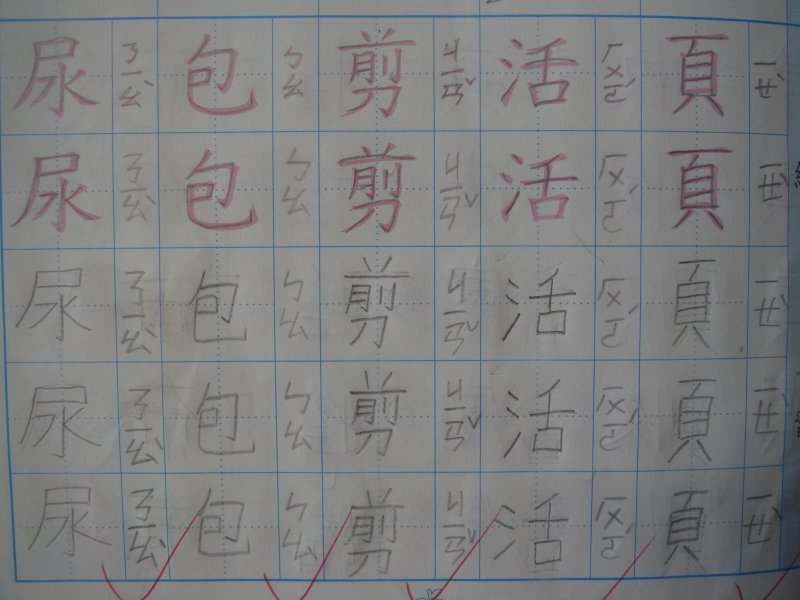 頁ㄧㄝˋ 頁ㄧㄝˋ 頁ㄧㄝˋ 頁ㄧㄝˋ 頁ㄧㄝˋ
活ㄏㄨㄛˊ 活ㄏㄨㄛˊ 活ㄏㄨㄛˊ 活ㄏㄨㄛˊ 活ㄏㄨㄛˊ
剪ㄐㄧㄢˇ 剪ㄐㄧㄢˇ 剪ㄐㄧㄢˇ 剪ㄐㄧㄢˇ 剪ㄐㄧㄢˇ
包ㄅㄠ 包ㄅㄠ 包ㄅㄠ 包ㄅㄠ 包ㄅㄠ
尿ㄋㄧㄠˋ 尿ㄋㄧㄠˋ 尿ㄋㄧㄠˋ 尿ㄋㄧㄠˋ 尿ㄋㄧㄠˋ